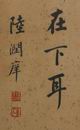 在下耳
陸潤庠